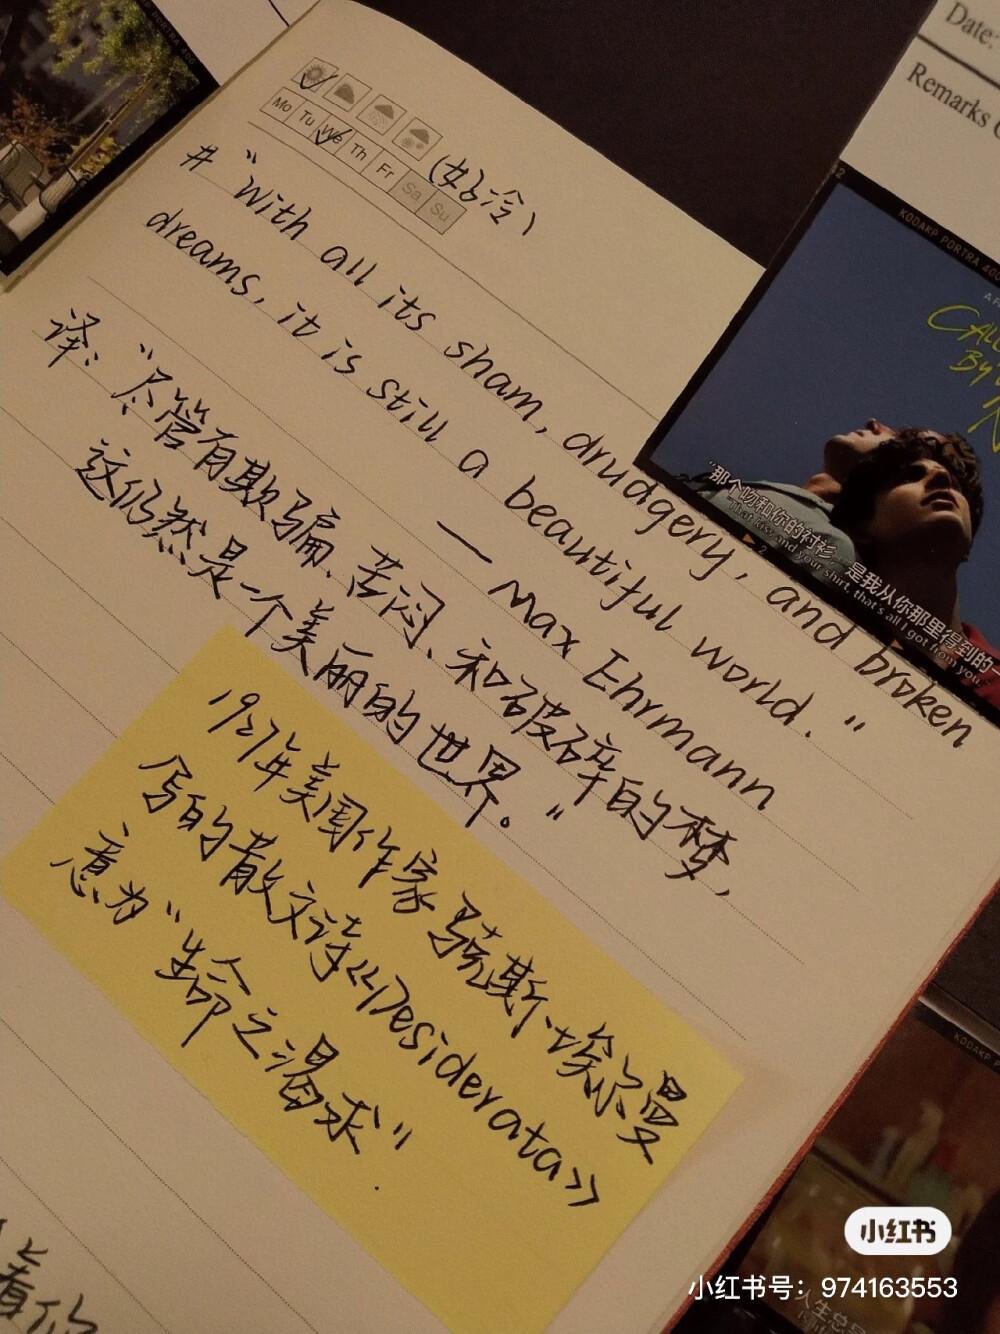 Date:
Remarks
Mo Tu We Th Fr Sa Su
(好冷)
# "With all its sham, drudgery, and broken
dreams, it is still a beautiful world."
— Max Ehrmann
译："尽管有欺骗、苦闷、和破碎的梦，
这仍然是一个美丽的世界。"
1927年美国作家 麦克斯·埃尔曼
写的散文诗《Desiderata》
意为"生命之渴求"
.
KODAKP PORTRA 400
CALL
BY
N
"那个吻和你的衬衫，是我从你那里得到的一
"That kiss and your shirt, that's all I got from you.
KODAKP
着你
人生总是
小红书
小红书号：974163553